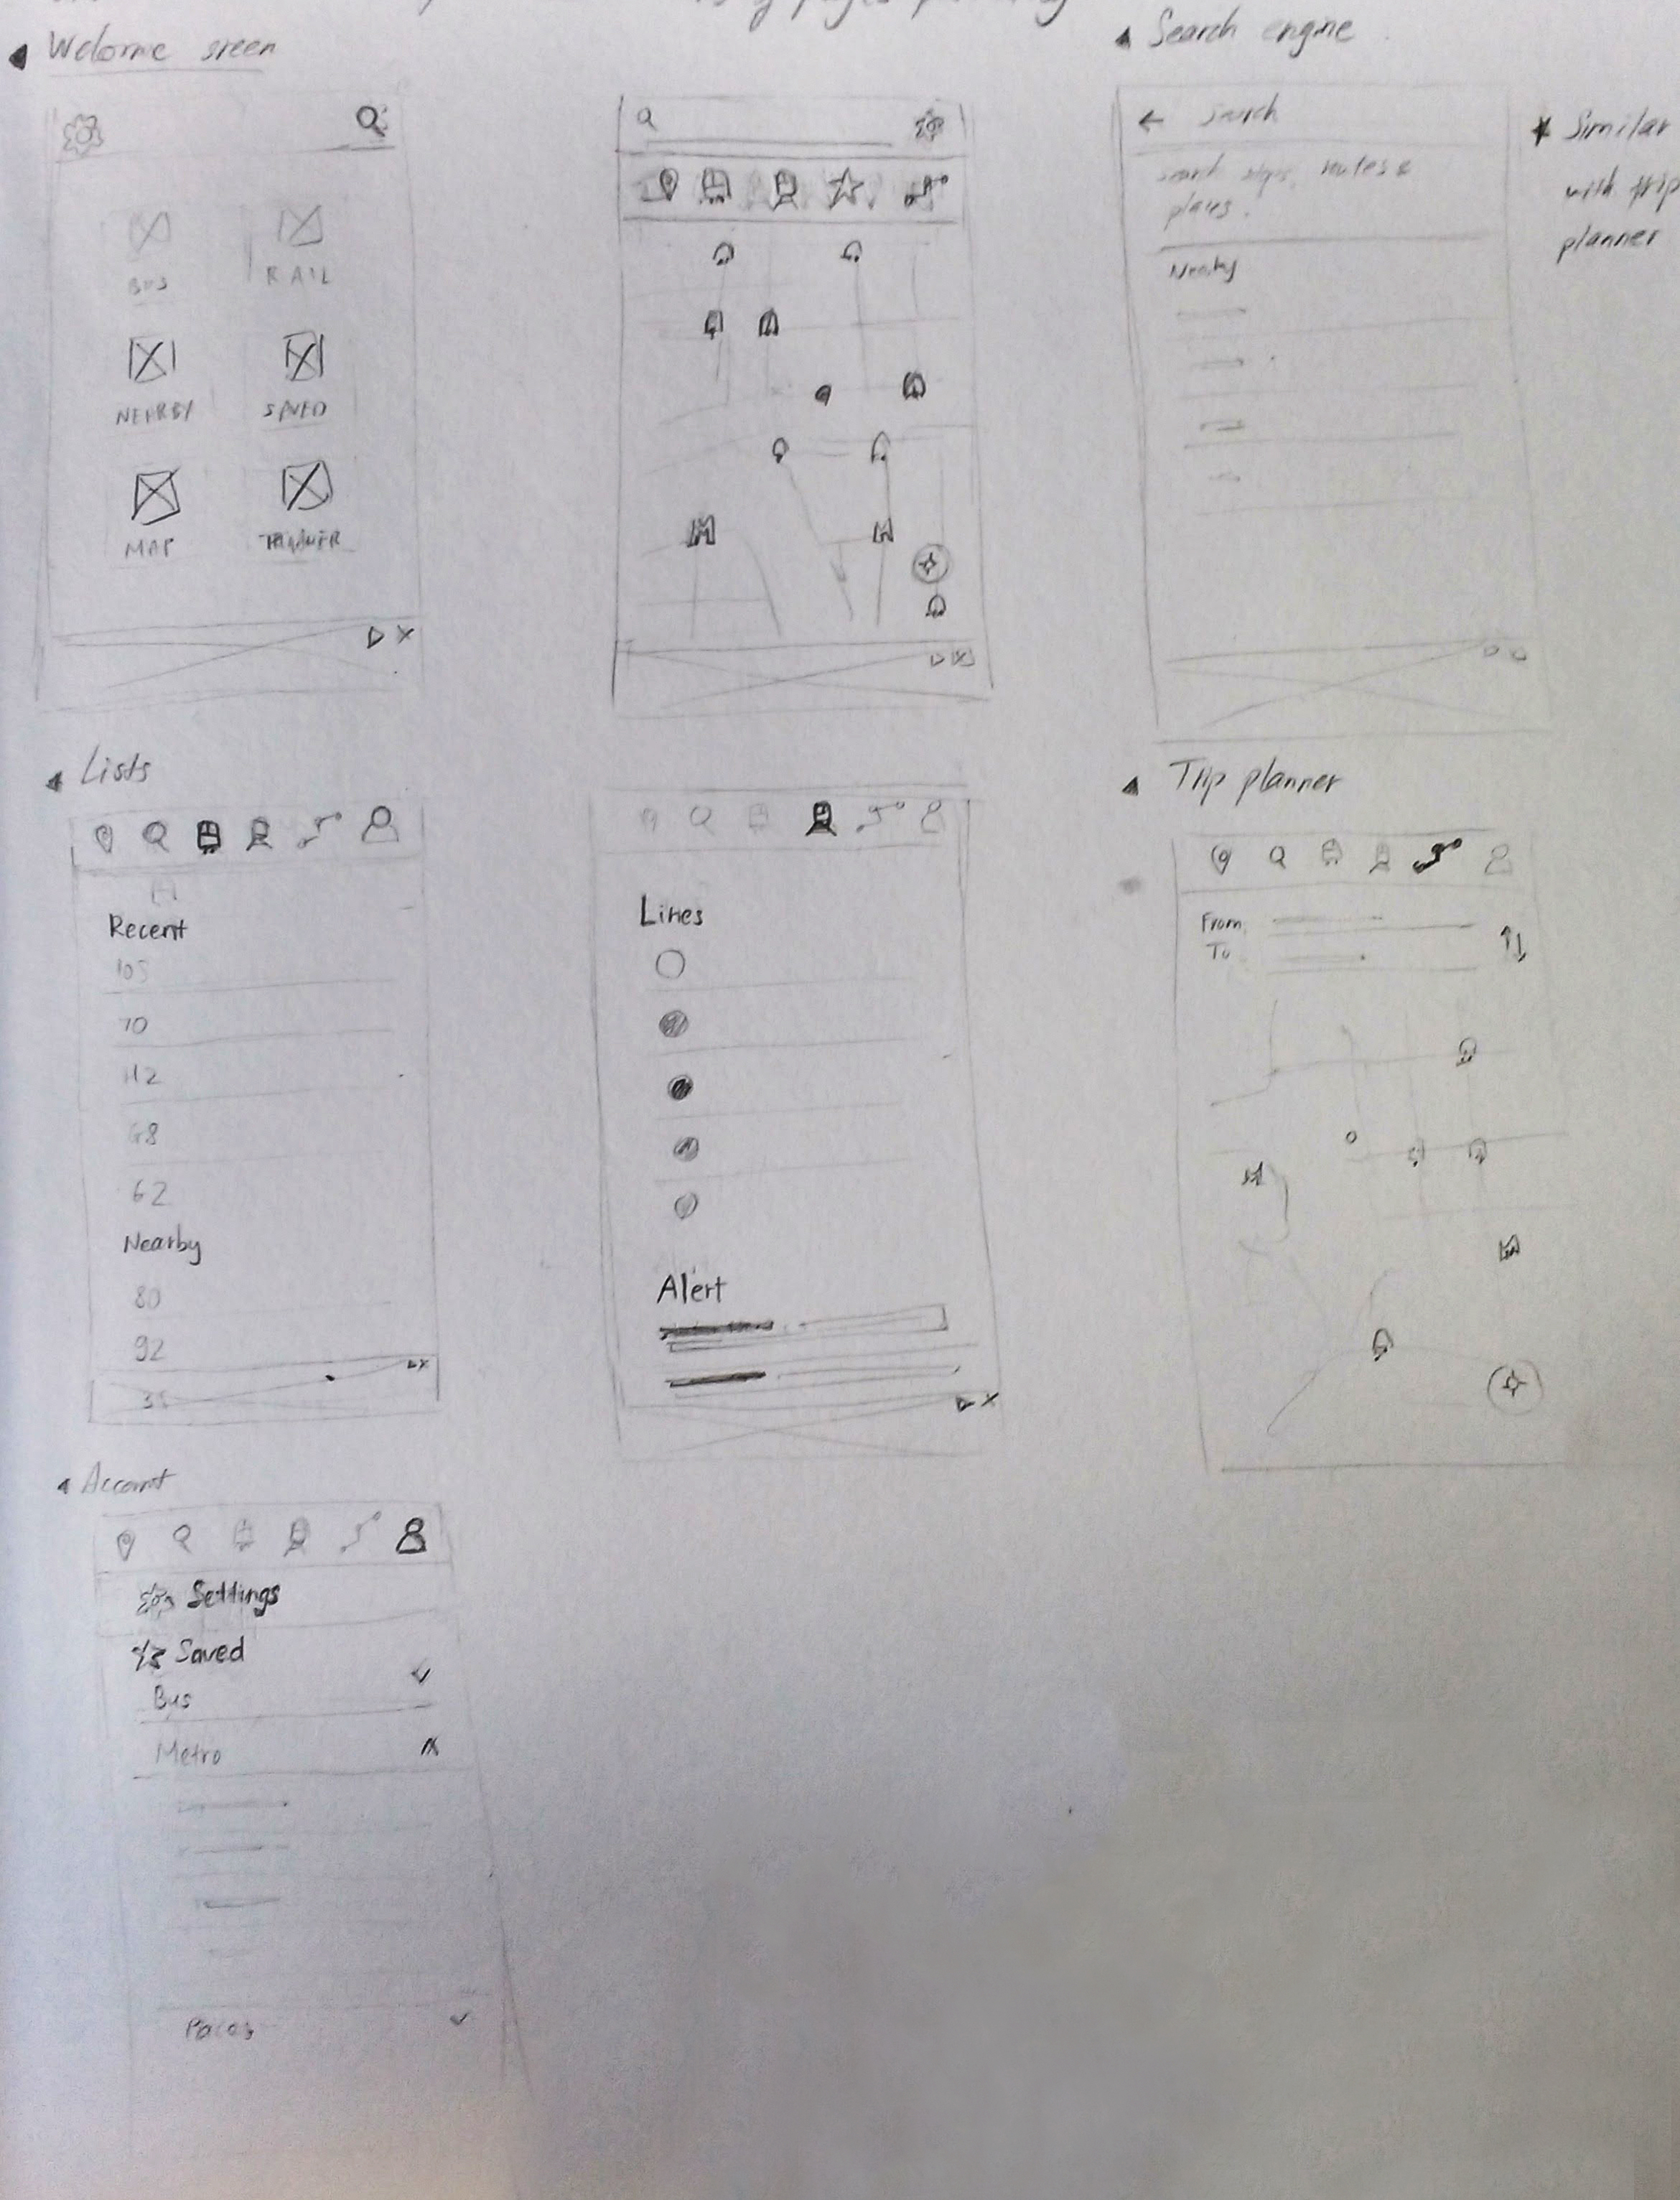 Welcome sreen
BUS
RAIL
NEARBY
SAVED
MAP
Search engine
← Search
search stops, routes &
places.
Nearby
Similar
with trip
planner
Lists
Recent
105
70
H2
G8
62
Nearby
80
92
Lines
Alert
Trip planner
From
To
Account
Settings
Saved
Bus
Metro
M
M